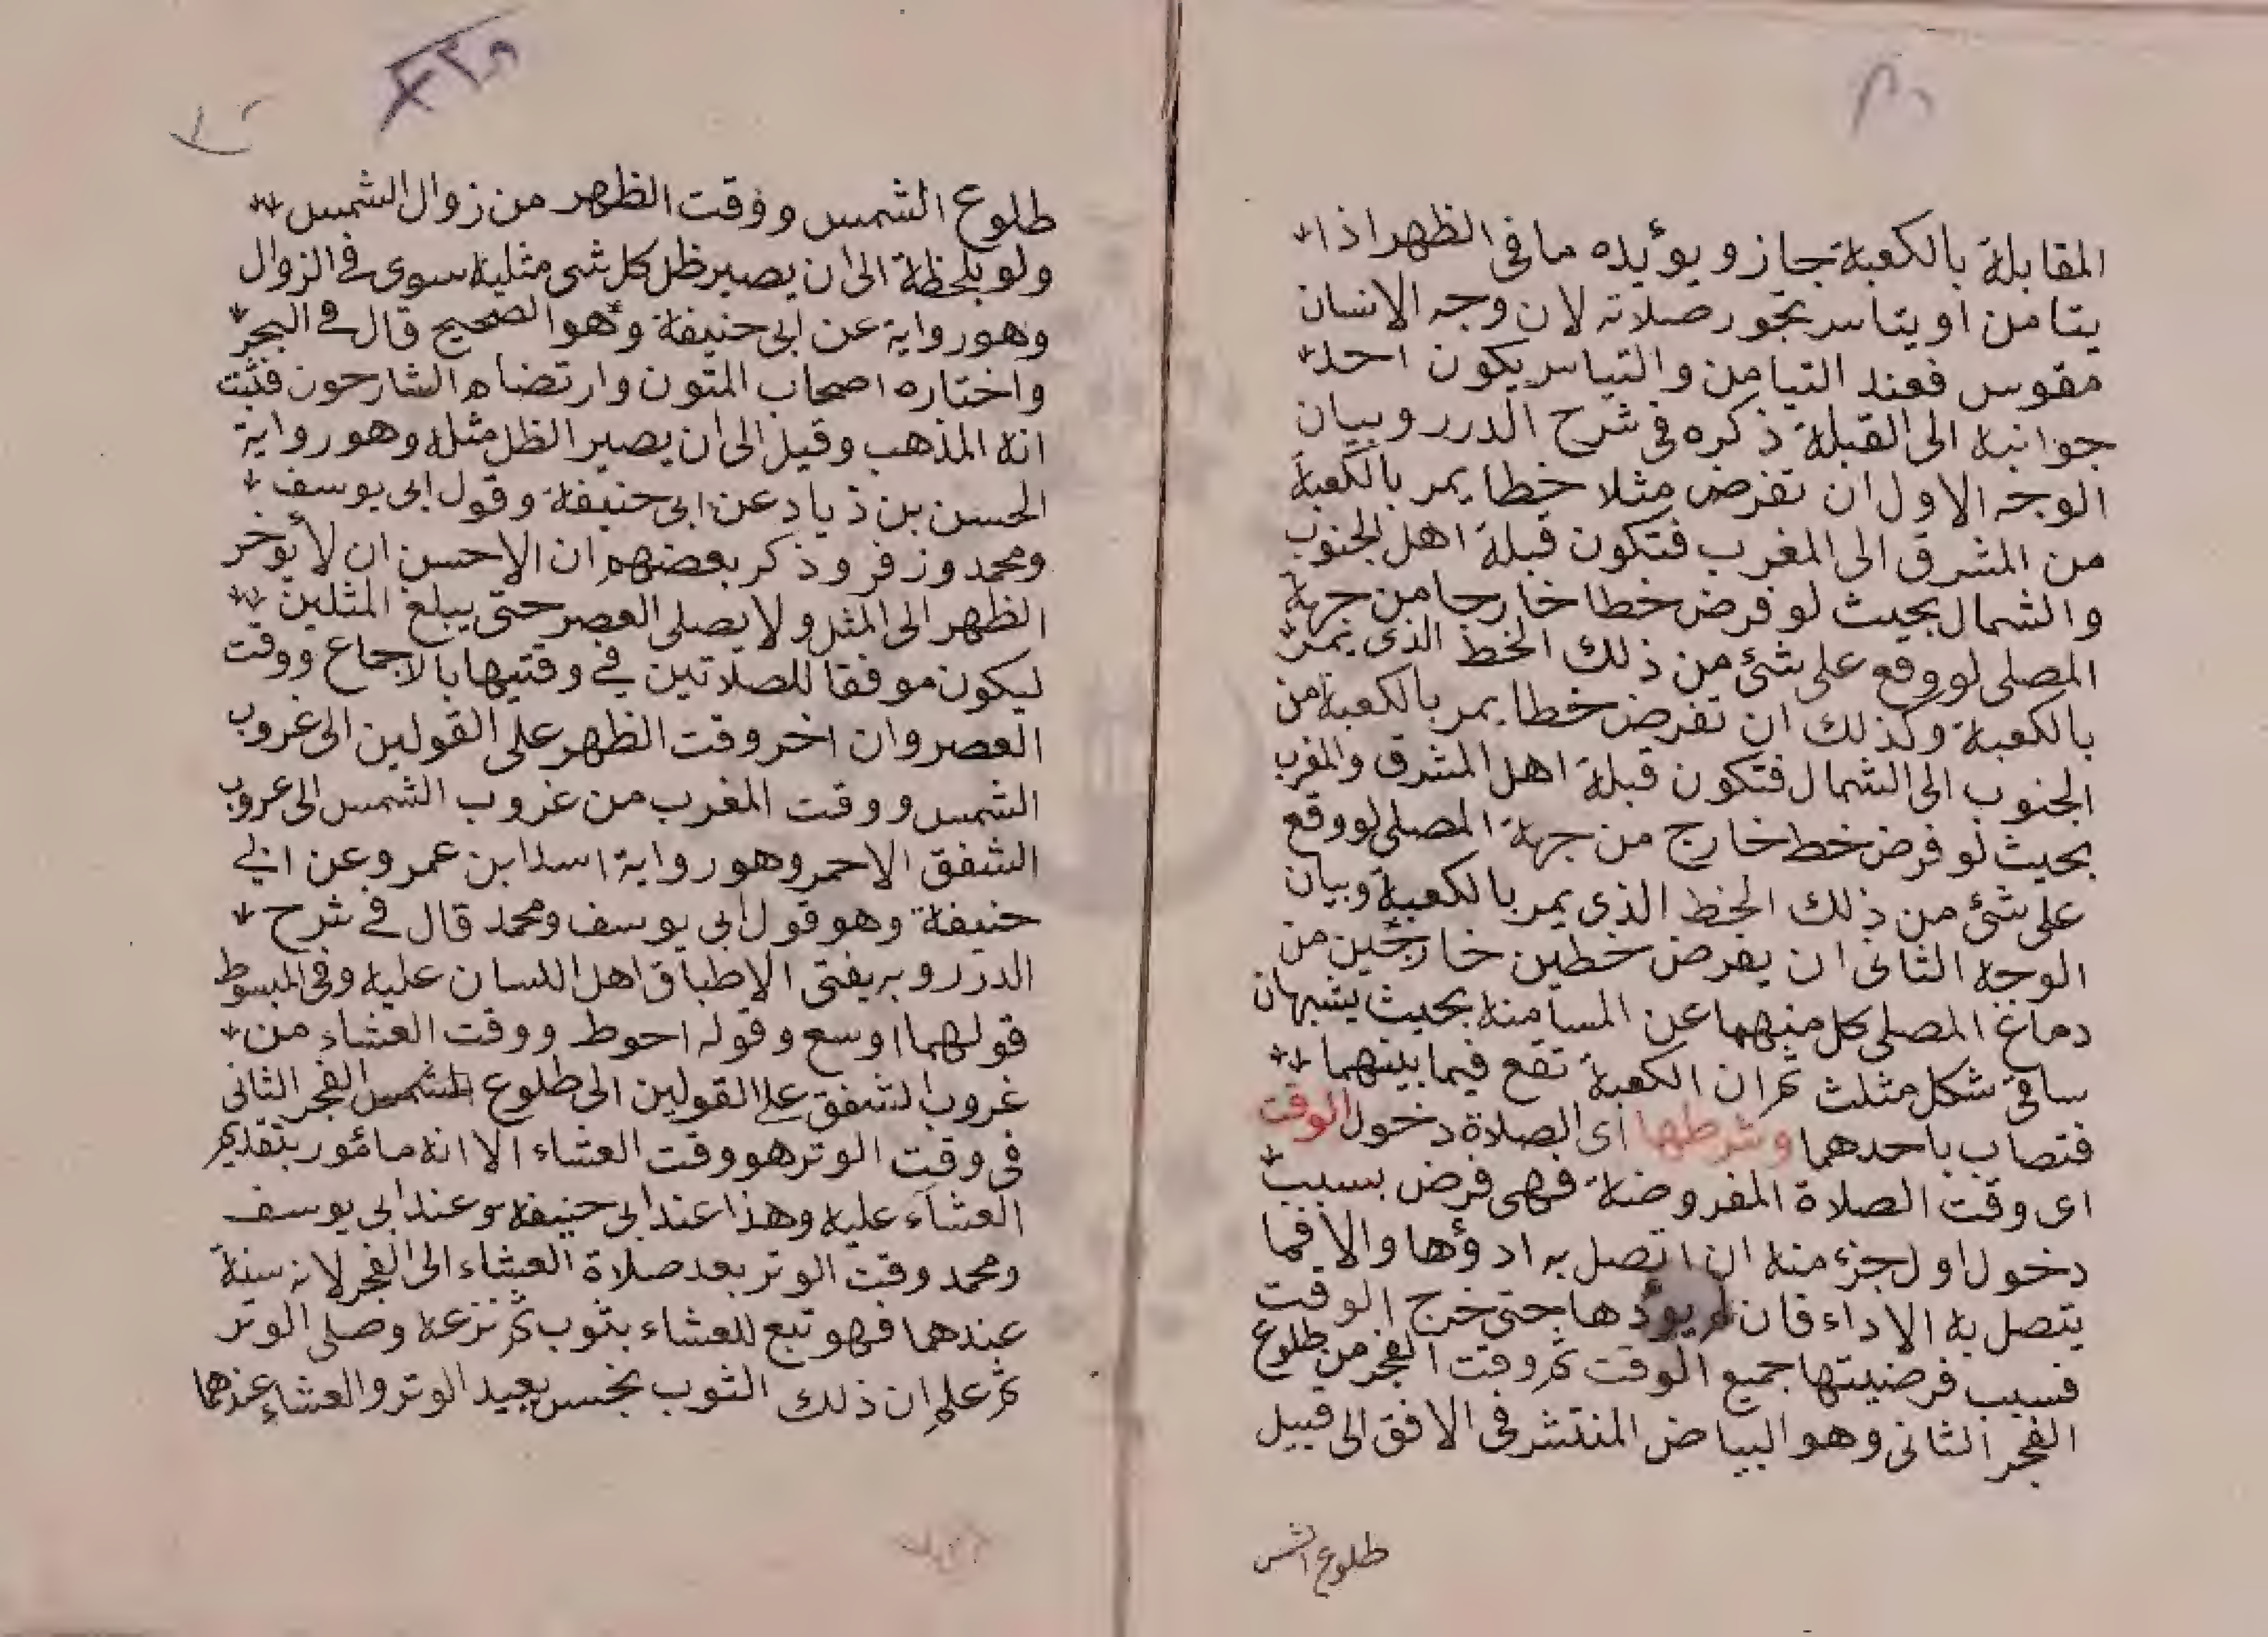 المقابلة بالكعبة جاز ويؤيده ما فى الظهر اذا
يتامن او يتاسر يجوز صلاته لان وجه الانسان
مقوس فعند التيامن والتياسر يكون احد
جوانبه الى القبلة ذكره فى شرح الدرر وبيان
الوجه الاول ان تفرض مثلا خطا يمر بالكعبة
من المشرق الى المغرب فتكون قبلة اهل الجنوب
والشمال بحيث لو فرض خطا خارجا من جهة
المصلى لو وقع على شئ من ذلك الخط الذى يمر
بالكعبة وكذلك ان تفرض خطا يمر بالكعبة من
الجنوب الى الشمال فتكون قبلة اهل المشرق والمغرب
بحيث لو فرض خط خارج من جهة المصلى لو وقع
على شئ من ذلك الخط الذى يمر بالكعبة وبيان
الوجه الثانى ان يفرض خطين خارجين من
دماغ المصلى كل منهما عن المسامنة بحيث يشبهان
ساقى شكل مثلث ثم ان الكعبة تقع فيما بينهما
فتصاب باحدهما وشرطها اى الصلاة دخول الوقت
اى وقت الصلاة المفروضة فهى فرض بسبب
دخول اول جزء منه ان اتصل به ادؤها والا فما
يتصل به الاداء فان لم يؤدها حتى خرج الوقت
فسبب فرضيتها جميع الوقت ثم وقت الفجر من طلوع
الفجر الثانى وهو البياض المنتشر فى الافق الى قبيل
طلوع الشمس
طلوع الشمس ووقت الظهر من زوال الشمس
ولو بلحظة الى ان يصير ظل كل شى مثليه سوى فى الزوال
وهو رواية عن ابى حنيفة وهو الصحيح قال فى البحر
واختاره اصحاب المتون وارتضاه الشارحون فثبت
انه المذهب وقيل الى ان يصير الظل مثله وهو رواية
الحسن بن ذياد عن ابى حنيفة وقول ابى يوسف
ومحمد وزفر وذكر بعضهم ان الاحسن ان لا يؤخر
الظهر الى المثل ولا يصلى العصر حتى يبلغ المثلين
ليكون موفقا للصلاتين فى وقتيها بالاجماع ووقت
العصر وان اخر وقت الظهر على القولين الى غروب
الشمس ووقت المغرب من غروب الشمس الى غروب
الشفق الاحمر وهو رواية اسد ابن عمر وعن ابى
حنيفة وهو قول ابى يوسف ومحمد قال فى شرح
الدرر وبه يفتى الاطباق اهل اللسان عليه وفى المبسوط
قولهما اوسع وقوله احوط ووقت العشاء من
غروب الشفق على القولين الى طلوع الفجر الثانى
فى وقت الوتر هو وقت العشاء الا انه مأمور بتقديم
العشاء عليه وهذا عند ابى حنيفة وعند ابى يوسف
ومحمد وقت الوتر بعد صلاة العشاء الى الفجر لانه سنة
عندهما فهو تبع للعشاء بثوب ثم نزعه وصلى الوتر
ثم علم ان ذلك الثوب نجس يعيد الوتر والعشاء عندهما